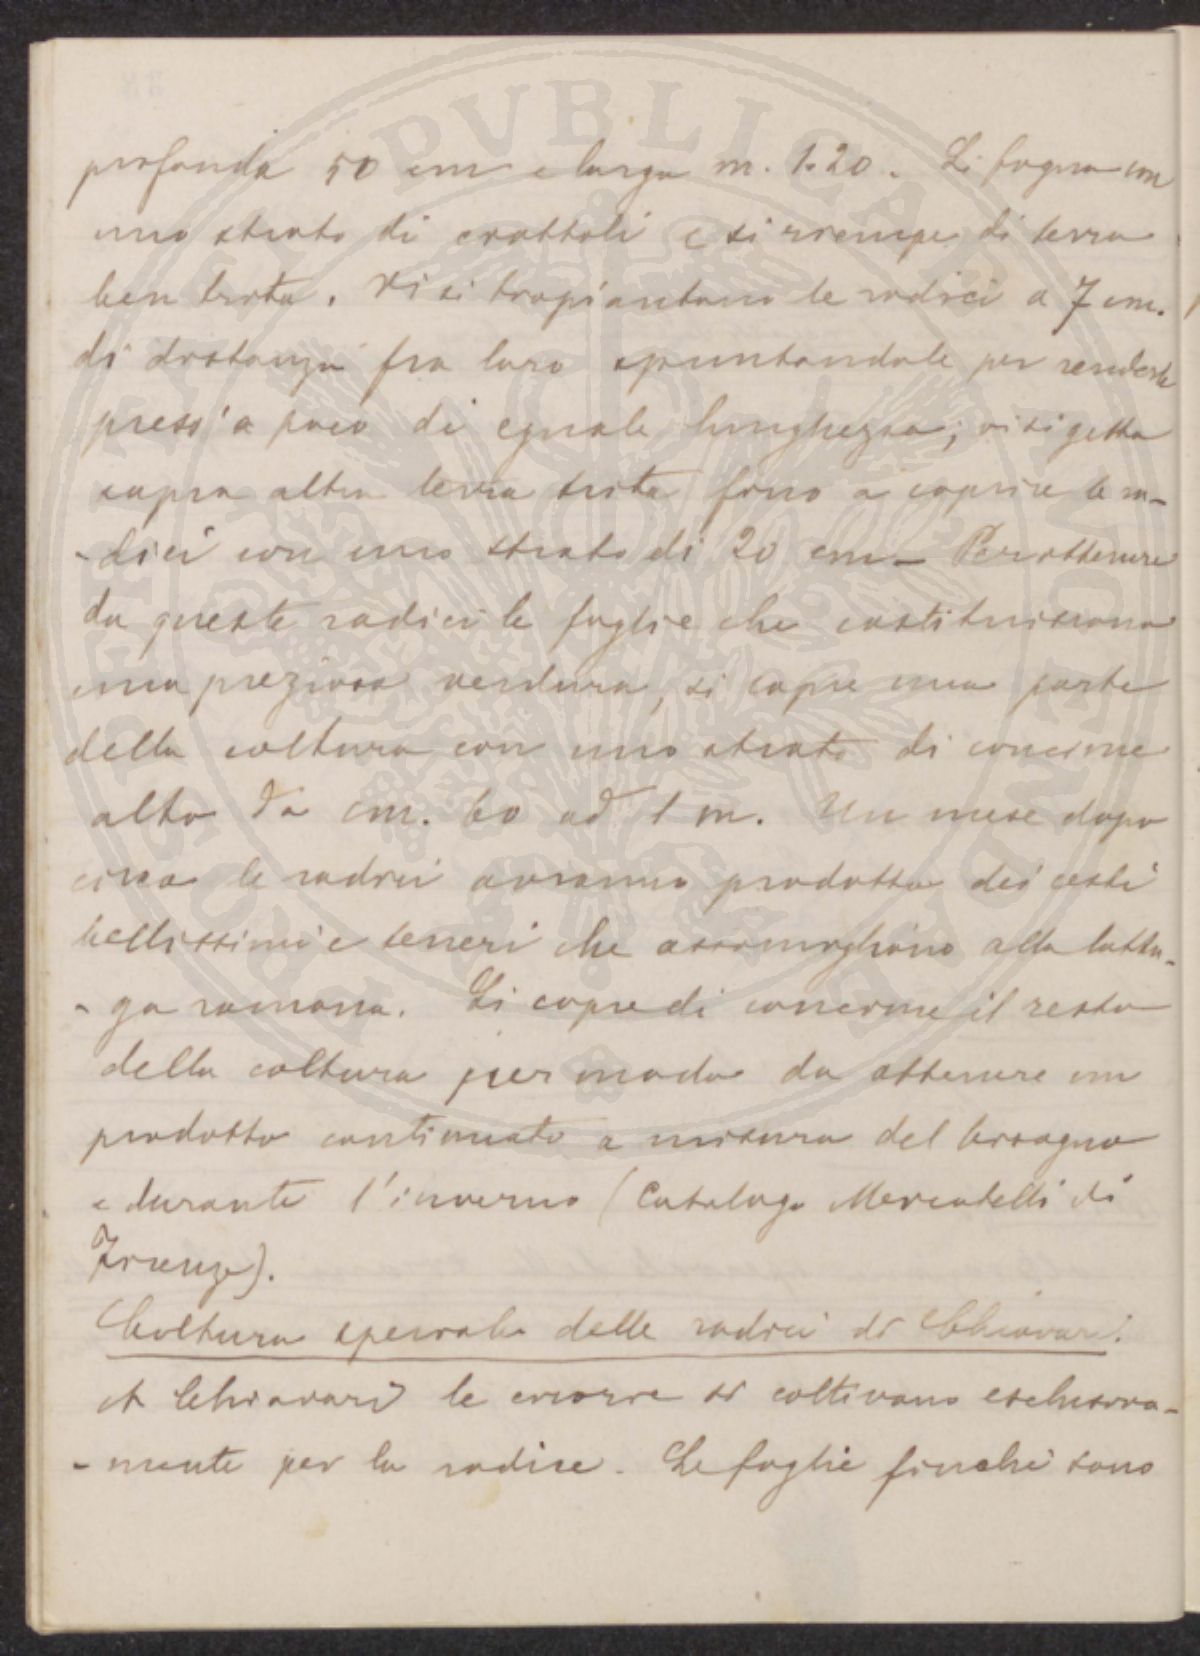 profonda 50 cm e larga m. 1.20. Si fogna con
uno strato di ciottoli e si riempie di terra
ben trita. Vi si trapiantano le radici a 7 cm.
di distanza fra loro spuntandole per renderle
press'a poco di eguale lunghezza; vi si getta
sopra altra terra trita fino a coprire le ra-
-dici con uno strato di 20 cm - Per ottenere
da queste radici le foglie che costituiscono
una preziosa verdura, si copre una parte
della coltura con uno strato di concime
alto da cm. 60 ad 1 m. Un mese dopo
circa le radici avranno prodotto dei cesti
bellissimi e teneri che assomigliano alla lattu-
-ga romana. Si copre di concime il resto
della coltura per modo da ottenere un
prodotto continuato a misura del bisogno
e durante l'inverno (Catalogo Mercatelli di
Firenze).
Coltura speciale delle radici di Chiavari.
A Chiavari le cicorie si coltivano esclusiva-
-mente per la radice. Le foglie finchè sono
PVBLICAE